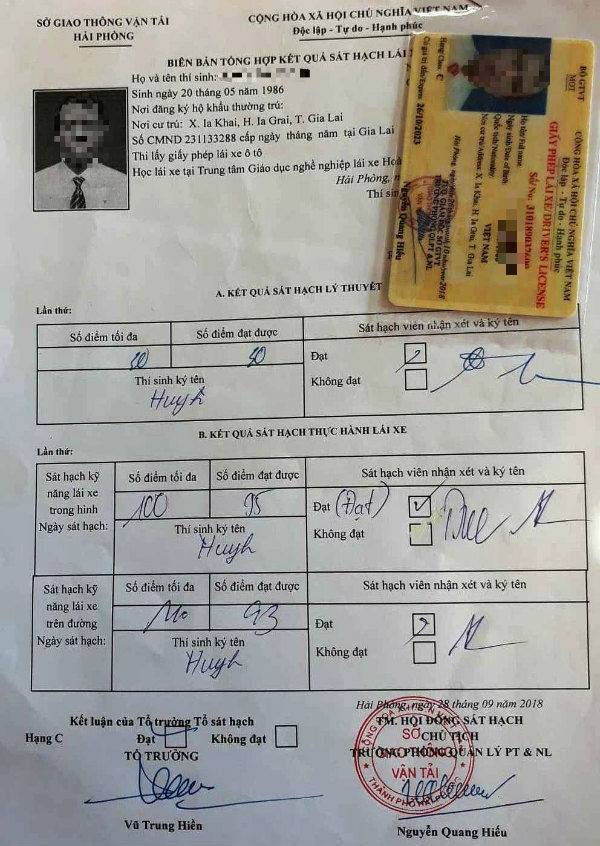 SỞ GIAO THÔNG VẬN TẢI
HẢI PHÒNG
CỘNG HÒA XÃ HỘI CHỦ NGHĨA VIỆT NAM
Độc lập - Tự do - Hạnh phúc
BIÊN BẢN TỔNG HỢP KẾT QUẢ SÁT HẠCH LÁI
Họ và tên thí sinh:
Sinh ngày 20 tháng 05 năm 1986
Nơi đăng ký hộ khẩu thường trú:
Nơi cư trú: X. Ia Khai, H. Ia Grai, T. Gia Lai
Số CMND 231133288 cấp ngày tháng năm tại Gia Lai
Thi lấy giấy phép lái xe ô tô
Học lái xe tại Trung tâm Giáo dục nghề nghiệp lái xe Hoà
Hải Phòng, n
Thí sin
BỘ GTVT
MOT
CỘNG HÒA XÃ HỘI CHỦ NGHĨA VIỆT NAM
Độc lập - Tự do - Hạnh phúc
GIẤY PHÉP LÁI XE/DRIVER'S LICENSE
Số/No:
Họ tên/Full name
Ngày sinh/Date of Birth
Quốc tịch/Nationality
VIỆT NAM
Nơi cư trú/Address X. Ia Khai, H. Ia Grai, T. Gia Lai
Hạng/Class: C
Có giá trị đến/Expires 26/10/2023
Nguyễn Quang Hiếu
A. KẾT QUẢ SÁT HẠCH LÝ THUYẾT
Lần thứ:
Số điểm tối đa
Số điểm đạt được
Sát hạch viên nhận xét và ký tên
30
Đạt
Thí sinh ký tên
Không đạt
Huyh
B. KẾT QUẢ SÁT HẠCH THỰC HÀNH LÁI XE
Lần thứ:
Sát hạch kỹ
năng lái xe
trong hình
Ngày sát hạch:
Số điểm tối đa
Số điểm đạt được
Sát hạch viên nhận xét và ký tên
100
95
Đạt (Đạt)
Thí sinh ký tên
Không đạt
Huyh
Sát hạch kỹ
năng lái xe
trên đường
Ngày sát hạch:
Số điểm tối đa
Số điểm đạt được
Sát hạch viên nhận xét và ký tên
93
Đạt
Thí sinh ký tên
Không đạt
Huyh
Hải Phòng, ngày 28 tháng 09 năm 2018
Kết luận của Tổ trưởng Tổ sát hạch
Hạng C
Đạt
Không đạt
TỔ TRƯỞNG
Vũ Trung Hiền
TM. HỘI ĐỒNG SÁT HẠCH
CHỦ TỊCH
TRƯỞNG PHÒNG QUẢN LÝ PT & NL
SỞ
GIAO THÔNG
VẬN TẢI
Nguyễn Quang Hiếu